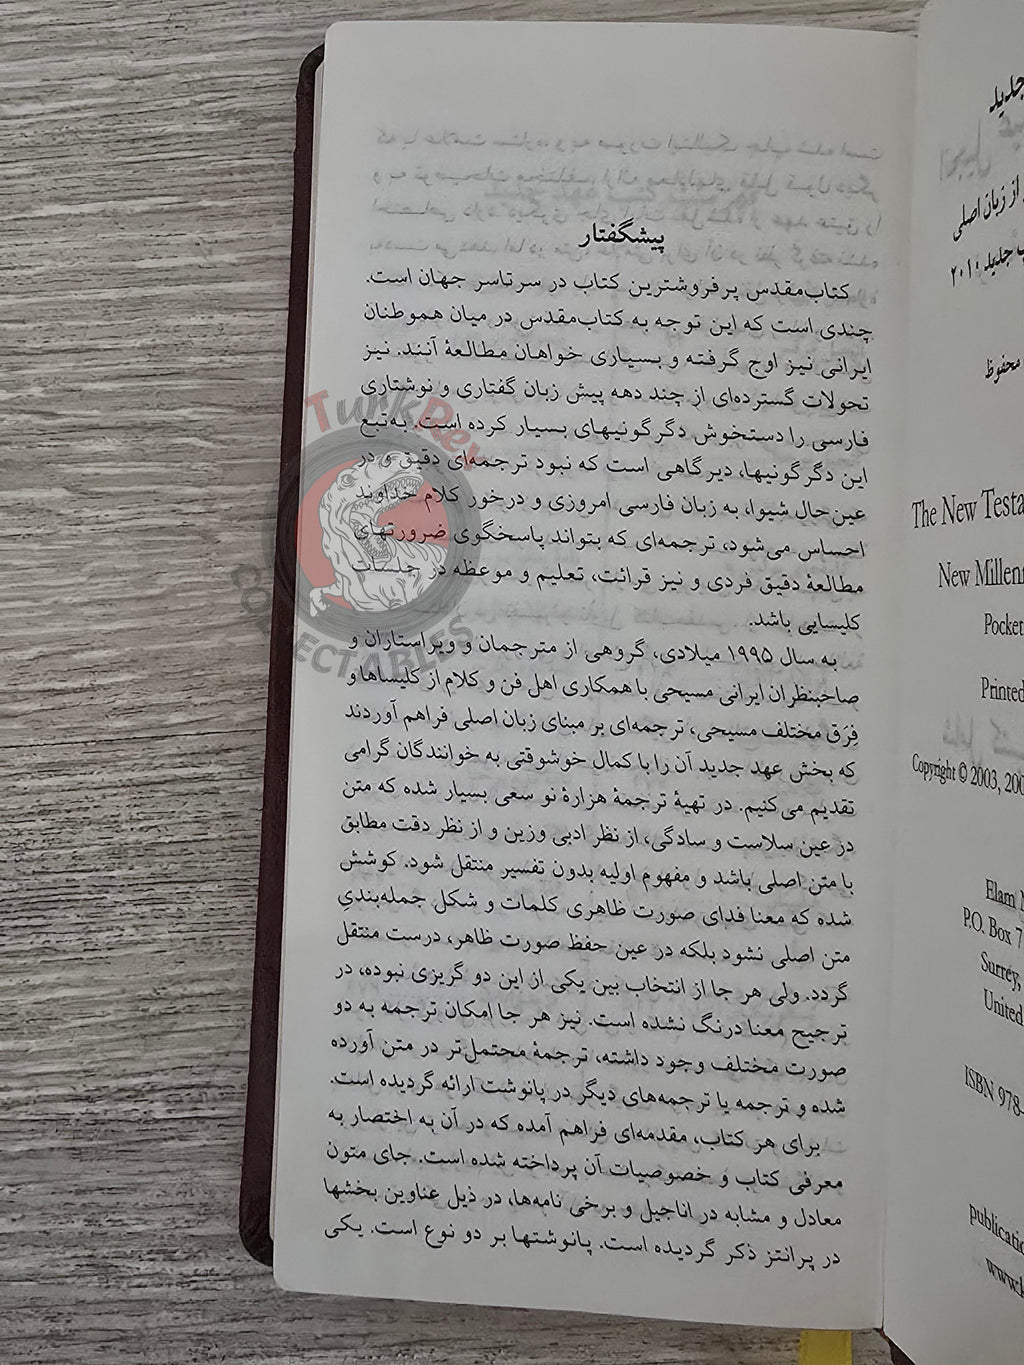 پیشگفتار
کتاب‌مقدس پرفروشترین کتاب در سرتاسر جهان است.
چندی است که این توجه به کتاب‌مقدس در میان هموطنان
ایرانی نیز اوج گرفته و بسیاری خواهان مطالعهٔ آنند. نیز
تحولات گسترده‌ای از چند دهه پیش زبان گفتاری و نوشتاری
فارسی را دستخوش دگرگونیهای بسیار کرده است. به‌تبع
این دگرگونیها، دیرگاهی است که نبود ترجمه‌ای دقیق و در
عین‌حال شیوا، به زبان فارسی امروزی و درخور کلام خداوند
احساس می‌شود، ترجمه‌ای که بتواند پاسخگوی ضرورتهای
مطالعهٔ دقیق فردی و نیز قرائت، تعلیم و موعظه در جلسات
کلیسایی باشد.
به سال ۱۹۹۵ میلادی، گروهی از مترجمان و ویراستاران و
صاحبنظران ایرانی مسیحی با همکاری اهل فن و کلام از کلیساها و
فِرَق مختلف مسیحی، ترجمه‌ای بر مبنای زبان اصلی فراهم آوردند
که بخش عهد جدید آن را با کمال خوشوقتی به خوانندگان گرامی
تقدیم می‌کنیم. در تهیهٔ ترجمهٔ هزارهٔ نو سعی بسیار شده که متن
در عین سلاست و سادگی، از نظر ادبی وزین و از نظر دقت مطابق
با متن اصلی باشد و مفهوم اولیه بدون تفسیر منتقل شود. کوشش
شده که معنا فدای صورت ظاهری کلمات و شکل جمله‌بندیِ
متن اصلی نشود بلکه در عین حفظ صورت ظاهر، درست منتقل
گردد. ولی هر جا از انتخاب بین یکی از این دو گریزی نبوده، در
ترجیح معنا درنگ نشده است. نیز هر جا امکان ترجمه به دو
صورت مختلف وجود داشته، ترجمهٔ محتمل‌تر در متن آورده
شده و ترجمه یا ترجمه‌های دیگر در پانوشت ارائه گردیده است.
برای هر کتاب، مقدمه‌ای فراهم آمده که در آن به اختصار به
معرفی کتاب و خصوصیات آن پرداخته شده است. جای متون
معادل و مشابه در اناجیل و برخی نامه‌ها، در ذیل عناوین بخشها
در پرانتز ذکر گردیده است. پانوشتها بر دو نوع است. یکی
TurkRex
COLLECTABLES
جدید
از زبان اصلی
جدید
محفوظ
The New
New
Pocket
Printed
Copyright © 2003,
Elam
P.O. Box 7
Surrey,
United
ISBN 978-